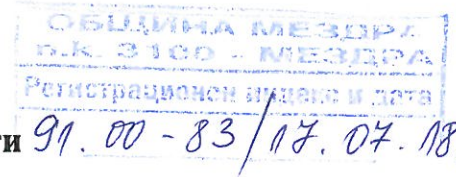 ОБЩИНА МЕЗДРА
п.к. 3100 - МЕЗДРА
Регистрационен индекс и дата
ти 91.00-83/17.07.18